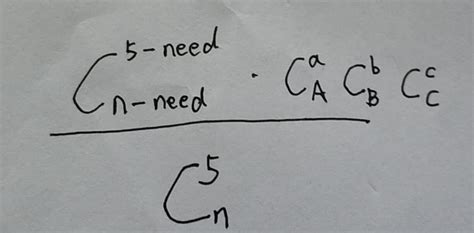 C_{n-need}^{5-need} · C_A^a C_B^b C_C^c
C_n^5